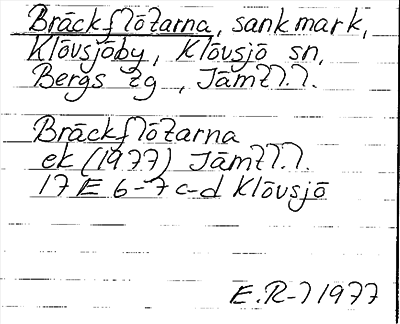 Bräckflötarna, sankmark,
Klövsjöby, Klövsjö sn,
Bergs tg, Jämtl.l.
Bräckflötarna
ek (1977) Jämtl.l.
17 E 6-7 c-d Klövsjö
E.R-7 1977